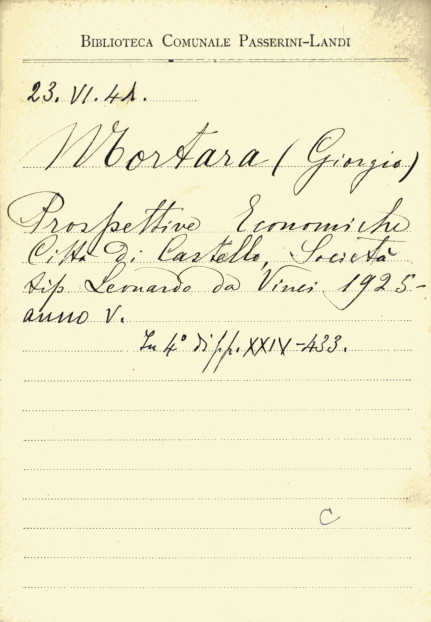 BIBLIOTECA COMUNALE PASSERINI-LANDI
23. VI. 41.
Mortara (Giorgio)
Prospettive Economiche
Città di Castello, Società
tip Leonardo da Vinci 1925-
anno V.
In 4° di pp. XXIV-433.
C